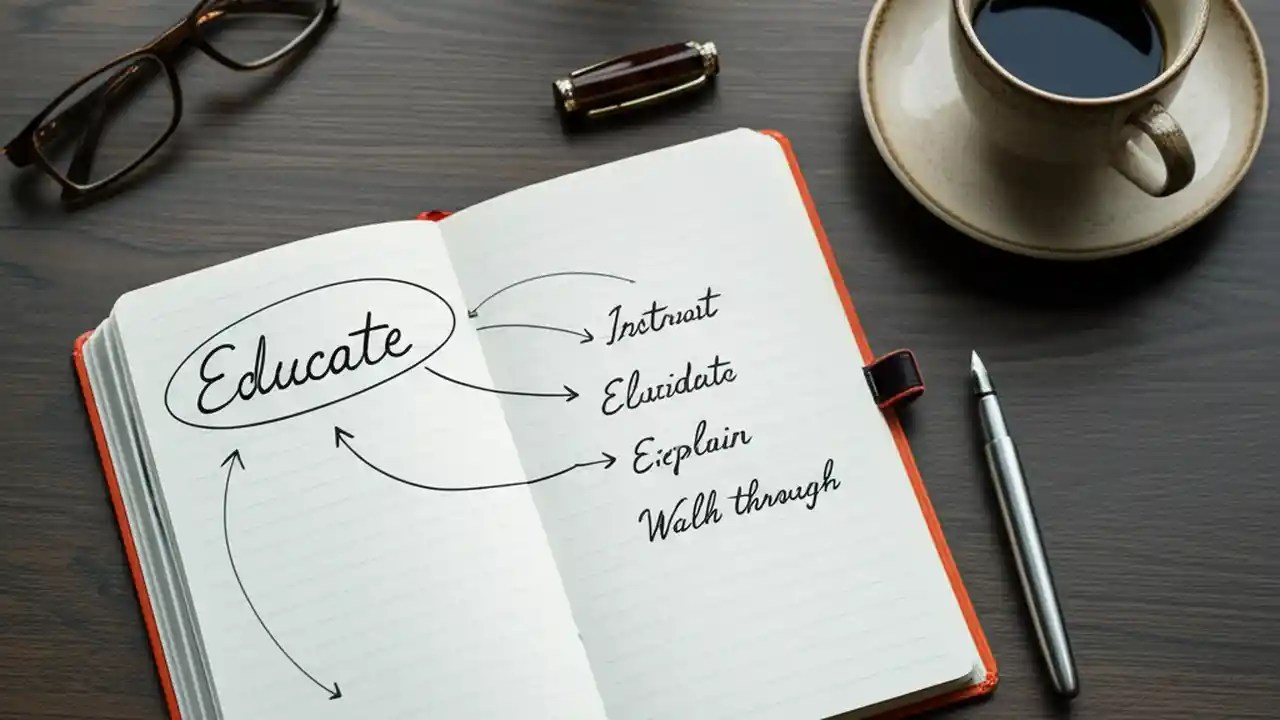 Educate
Instruat
Elucidate
Explain
Walk through